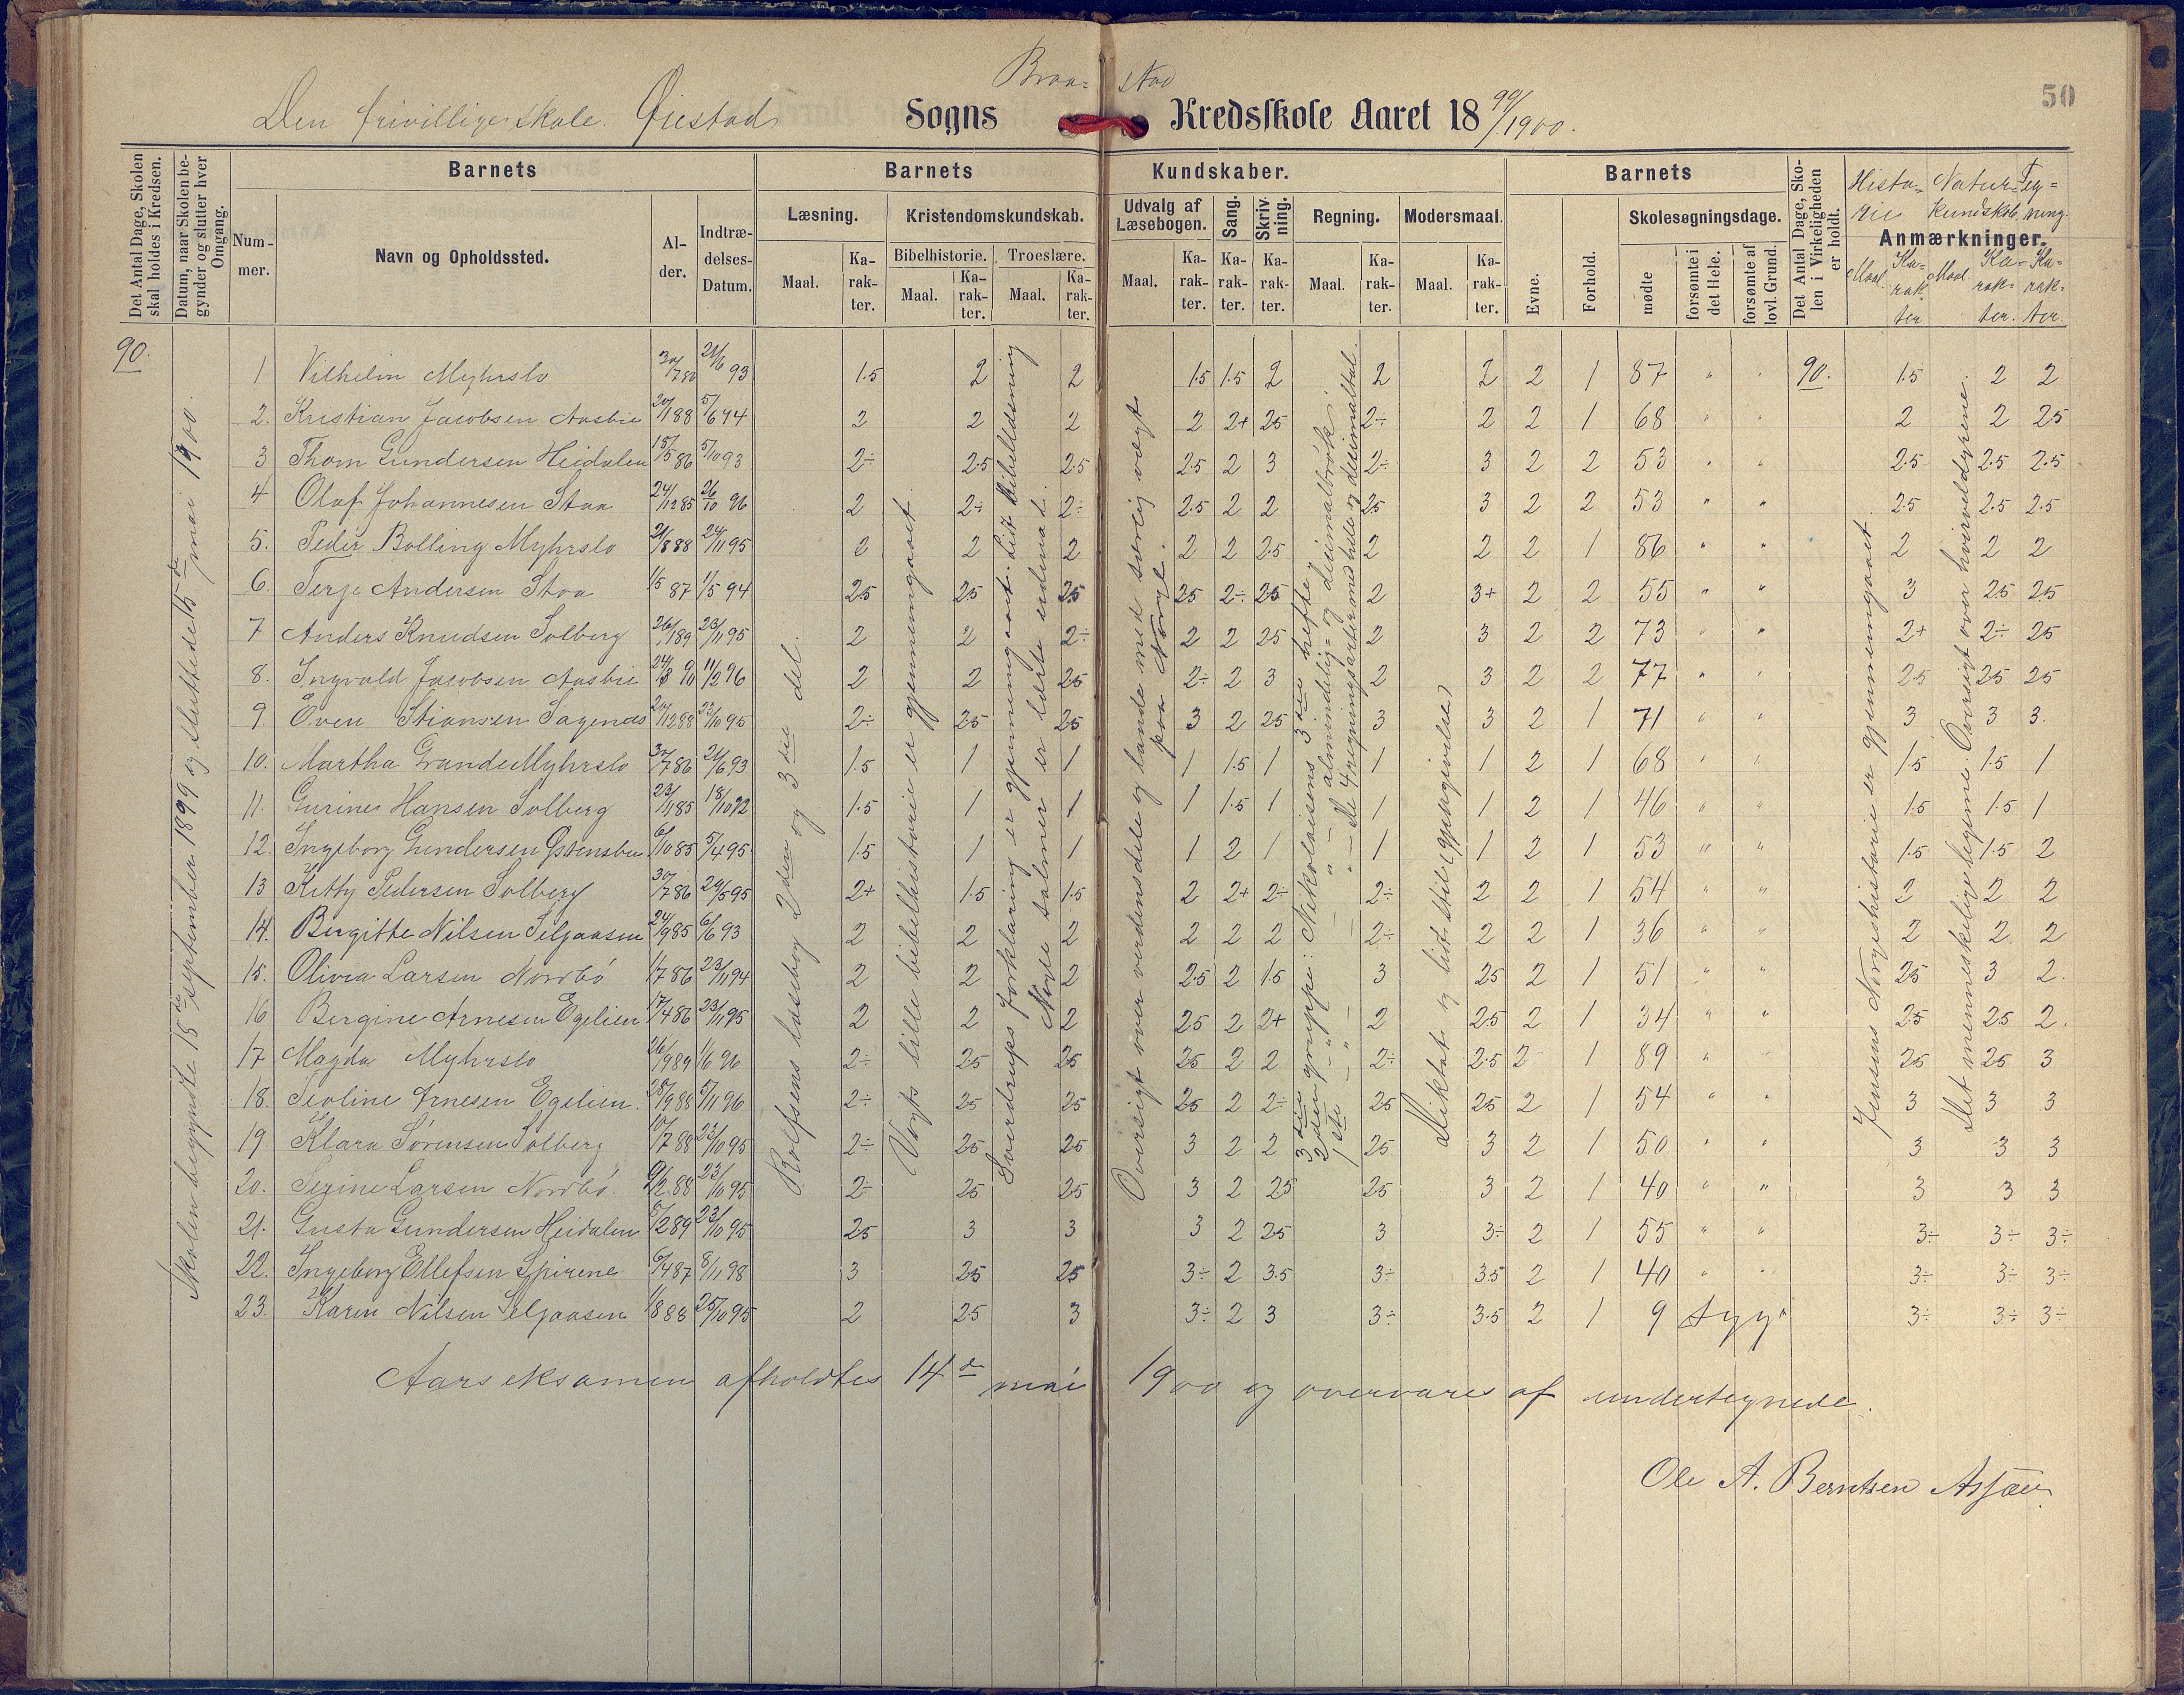 50
Braa= stad
Den frivillige skole. Øiestad Sogns Kredsskole Aaret 18 99/1900.
Det Antal Dage, Skolen skal holdes i Kredsen.
Datum, naar Skolen begynder og slutter hver Omgang.
Barnets
Nummer.
Navn og Opholdssted.
Alder.
Indtrædelses-Datum.
Barnets Kundskaber.
Læsning. Maal. Karakter.
Kristendomskundskab.
Bibelhistorie. Maal. Karakter.
Troeslære. Maal. Karakter.
Udvalg af Læsebogen. Maal. Karakter.
Sang. Karakter.
Skrivning. Karakter.
Regning. Maal. Karakter.
Modersmaal. Maal. Karakter.
Barnets
Evne.
Forhold.
Skolesøgningsdage.
mødte
forsømte i det Hele.
forsømte af lovl. Grund.
Det Antal Dage, Skolen i Virkeligheden er holdt.
Anmærkninger.
Historie Maal. Karakter
Naturkundskab. Maal. Karakter.
Tegning. Karakter.
90.
Skolen begyndte 15de september 1899 og sluttede 15de mai 1900.
Rolfsens læsebog 2den og 3die del.
Vogts lille bibelhistorie er gjennemgaaet.
Sverdrups forklaring er gjennemgaaet. Lidt bibellæsning
Nogle salmer er lærte udenad.
Oversigt over verdensdele og lande med særlig vægt
paa Norge.
3die gruppe: Nikolaisens 3die hefte
2den — " — — " — almindelig= og decimalbrøk.
1ste — " — — " — de 4 regningsarter med hele og decimaltal.
Diktat og lidt stil (gjengivelse)
Jensens Norgeshistorie er gjennemgaaet
Det menneskelige legeme. Oversigt over hvirveldyrene.
1 Vilhelm Myhrslo 30/7 86 21/6 93 1.5 2 2 1.5 1.5 2 2 2 2 1 87 " " 90. 1.5 2 2
2. Kristian Jacobsen Aasbie 20/1 88 5/6 94 2 2 2 2 2+ 25 2÷ 2 2 1 68 " " 2 2 25
3 Thom Gundersen Heidalen 15/5 86 5/10 93 2÷ 2.5 2.5 2.5 2 3 2÷ 3 2 2 53 " " 2.5 2.5 2.5
4 Olaf Johannesen Staa 24/12 85 26/10 96 2 2÷ 2÷ 2.5 2 2 25 3 2 2 53 " " 2.5 2.5 2.5
5. Peder Bolling Myhrslo 21/8 88 24/11 95 2 2 2 2 2 2.5 2 2 2 1 86 " " 2 2 2
6. Terje Andersen Stoa 1/5 87 1/5 94 25 25 25 25 2÷ 25 2 3+ 2 2 55 " " 3 25 25
7 Anders Knudsen Solberg 26/1 89 23/11 95 2 2 2÷ 2 2 25 2 3 2 2 73 " " 2+ 2÷ 25
8. Ingvald Jacobsen Aasbie 24/3 90 11/2 96 2 2 25 2÷ 2 3 2 3 2 2 77 " " 25 25 25
9. Oven Stiansen Sagenæs 20/12 88 23/10 95 2÷ 25 25 3 2 25 3 3 2 1 71 " " 3 3 3.
10. Martha Grande Myhrslo 30/7 86 21/6 93 1.5 1 1 1 1.5 1 1 1 2 1 68 " " 1.5 1.5 1
11. Gurine Hansen Solberg 23/11 85 18/10 92 1.5 1 1 1 1.5 1 1 1 2 1 46 " " 1.5 1.5 1
12. Ingeborg Gundersen Østensbu 6/10 85 5/4 95 1.5 1 1 1 2 1 1 1 2 1 53 " " 1.5 1.5 2
13 Kitty Pedersen Solberg 30/7 86 20/5 95 2+ 1.5 1.5 2 2+ 2÷ 2÷ 2 2 1 54 " " 2 2 2
14. Birgitte Nilsen Seljaasen 24/9 85 6/6 93 2 2 2 2 2 2 2÷ 2 2 1 36 " " 2 2 2
15. Olivia Larsen Nordbö 1/7 86 23/11 94 2 2 2 2.5 2 1.5 3 25 2 1 51 " " 25 3 2.
16 Bergine Arnesen Egelien 17/4 86 23/11 95 2 2 2 25 2 2+ 2 2.5 2 1 34 " " 25 25 2.
17 Magda Myhrslo 26/9 89 1/6 96 2÷ 25 25 25 2 2 2÷ 2.5 2 1 89 " " 25 25 3
18. Teoline Arnesen Egelien. 28/9 88 5/11 96 2÷ 25 25 25 2 2÷ 25 25 2 1 54 " " 3 3 3
19. Klara Sörensen Solberg 10/7 88 23/10 95 2÷ 25 25 3 2 2 25 3 2 1 50 " " 3 3 3
20. Serine Larsen Nordbö. 9/2 88 23/10 95 2÷ 25 25 3 2 25 25 3 2 1 40 " " 3 3 3
21. Gusta Gundersen Heidalen 5/2 89 23/10 95 25 3 3 3 2 25 3 3÷ 2 1 55 " " 3÷ 3÷ 3÷
22. Ingeborg Ellefsen Spirene 6/4 87 8/11 98 3 25 25 3÷ 2 3.5 3÷ 3.5 2 1 40 " " 3÷ 3÷ 3÷
23. Karen Nilsen Seljaasen 1/8 88 25/10 95 2 25 3 3÷ 2 3 3÷ 3.5 2 1 9 syg " 3÷ 3÷ 3÷
Aarseksamen afholdtes 14de mai 1900 og overvares af undertegnede.
Ole A. Berntsen Asjæu